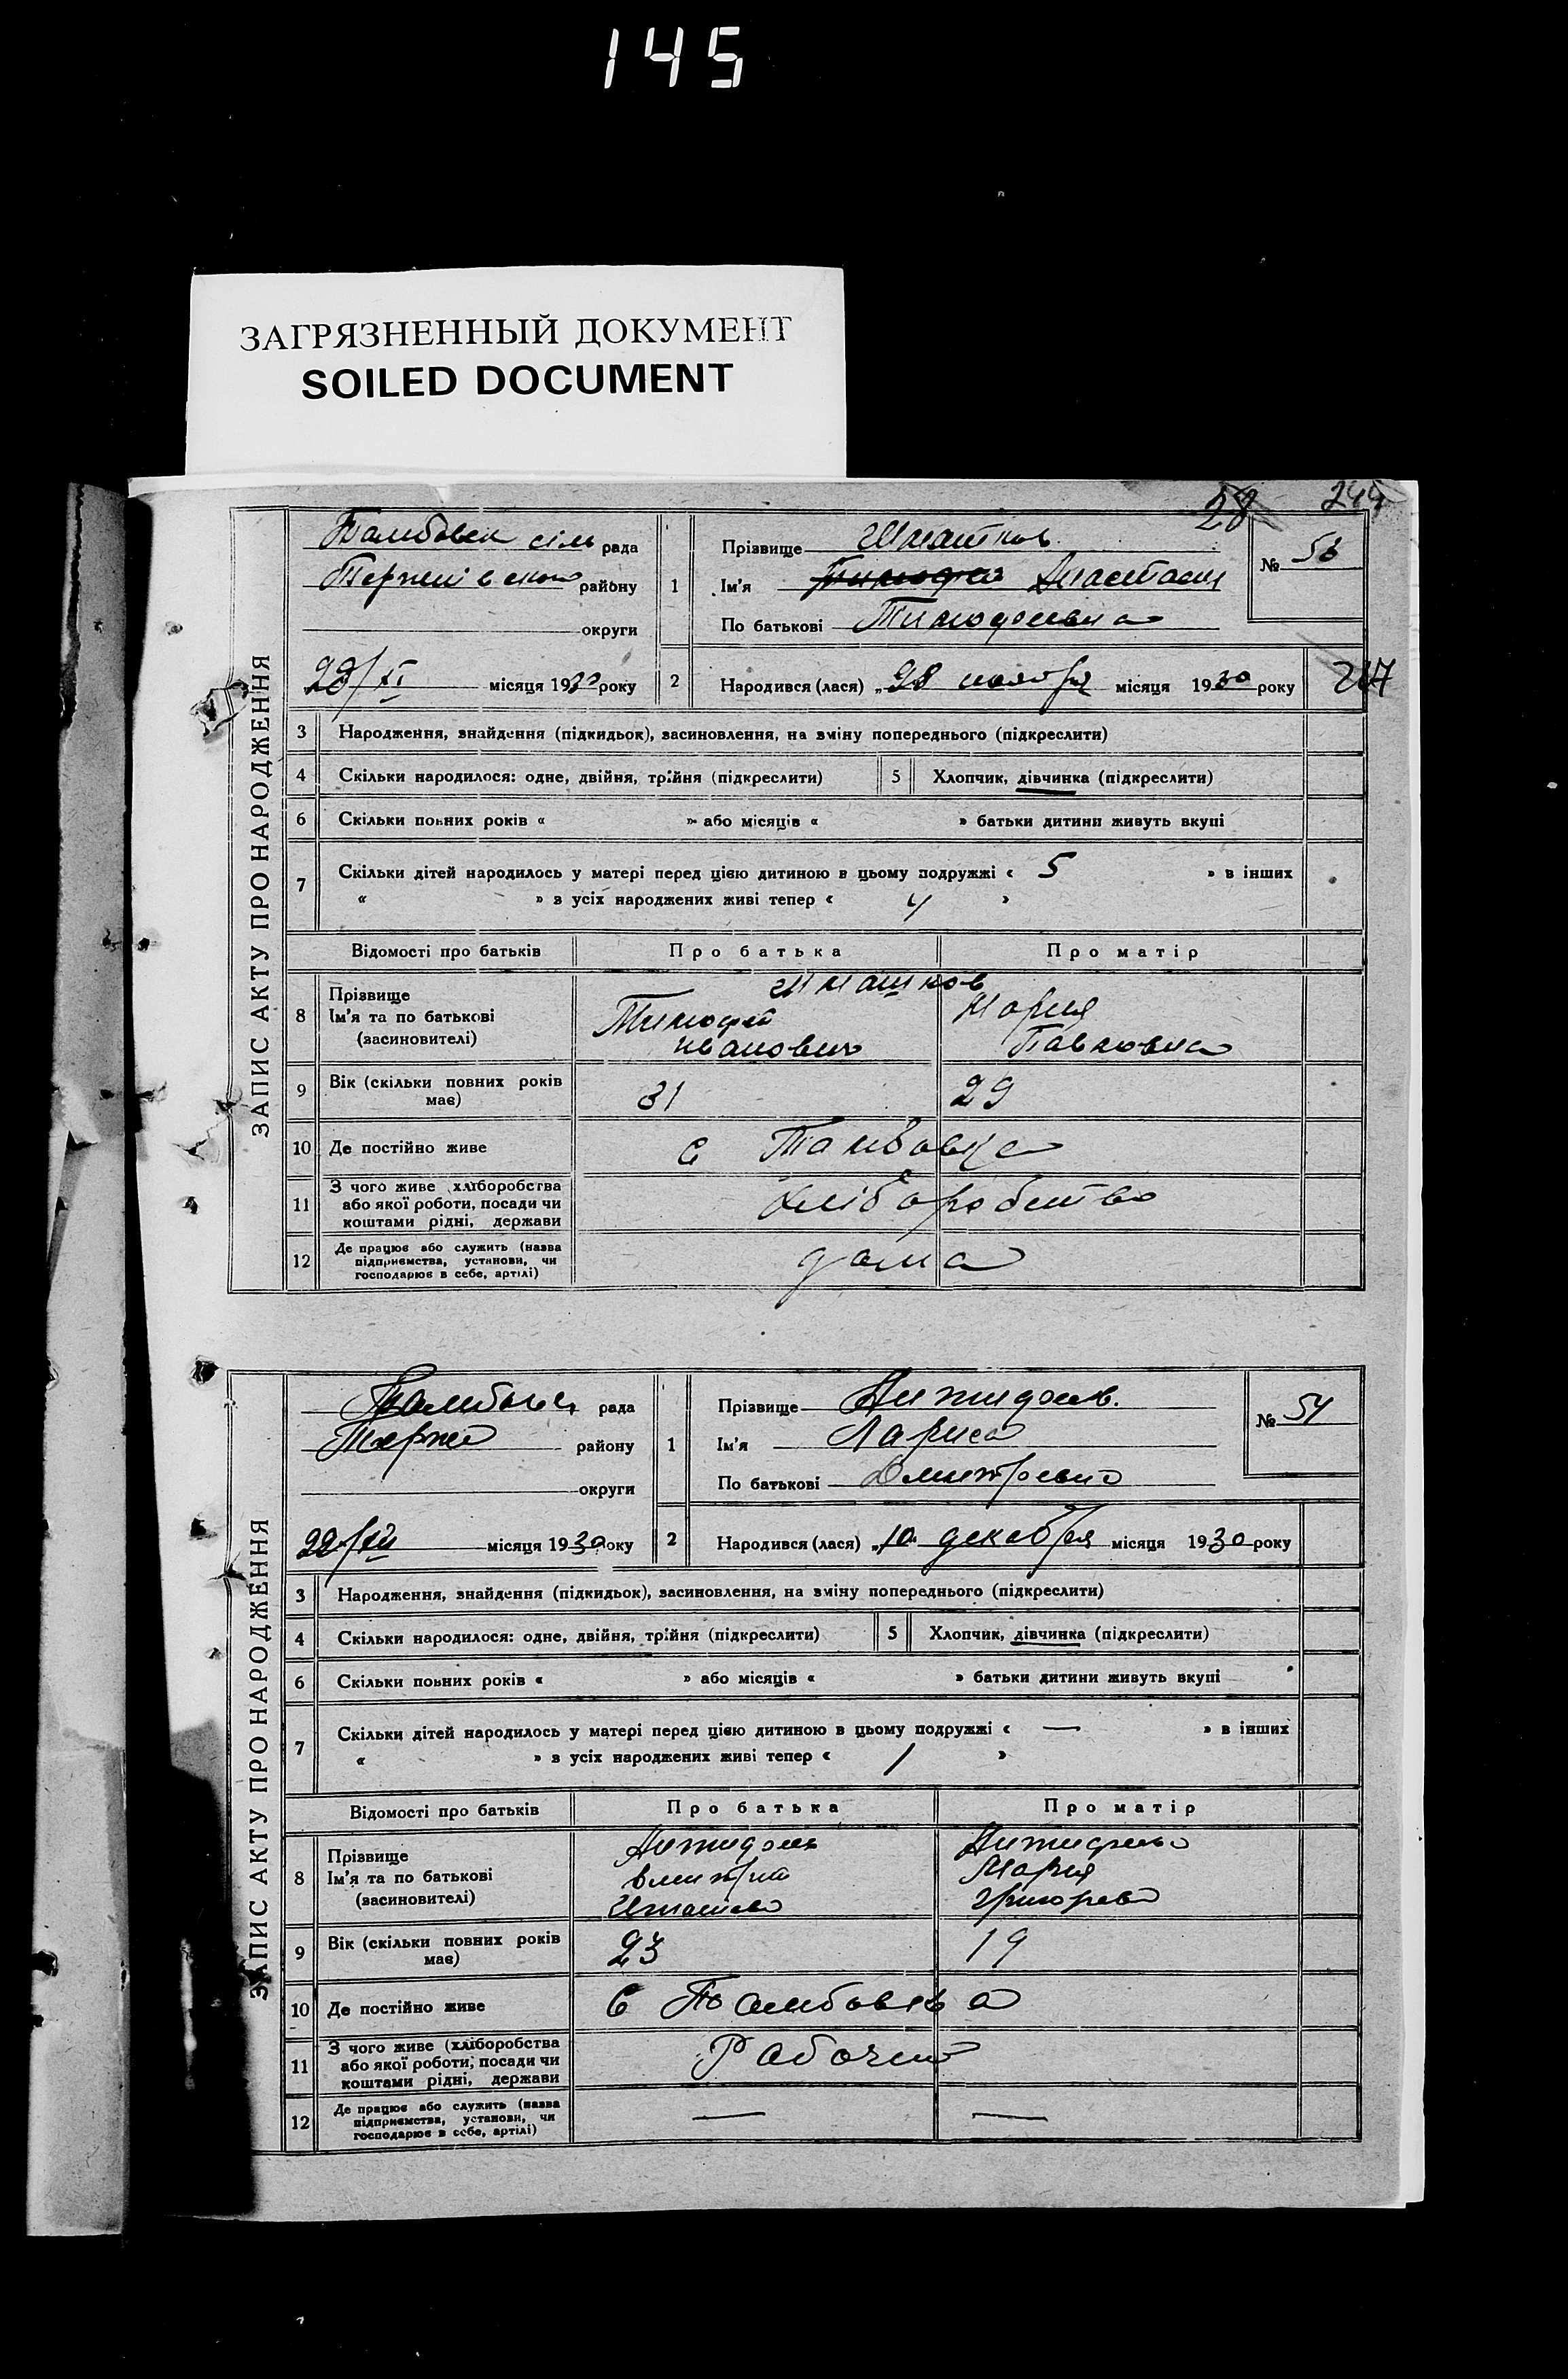 145
ЗАГРЯЗНЕННЫЙ ДОКУМЕНТ
SOILED DOCUMENT
28
244
ЗАПИС АКТУ ПРО НАРОДЖЕННЯ
рада
району
округи
місяця 1930 року
1
Прізвище
Ім'я Анастасия
По батькові Тимофеевна
№ 53
2 Народився (лася) „28 ноября місяця 1930 року
247
3 Народження, знайдення (підкидьок), засиновлення, на зміну попереднього (підкреслити)
4 Скільки народилося: одне, двійня, трійня (підкреслити) 5 Хлопчик, дівчинка (підкреслити)
6 Скільки повних років « » або місяців « » батьки дитини живуть вкупі
7 Скільки дітей народилось у матері перед цією дитиною в цьому подружжі « 5 » в інших
« » в усіх народжених живі тепер « 4 »
Відомості про батьків Про батька Про матір
8 Прізвище
Ім'я та по батькові
(засиновителі)
Тимофей
Иванович
Мария
Павловна
9 Вік (скільки повних років має) 31 29
10 Де постійно живе с Тамбовка
11 З чого живе хліборобства
або якої роботи, посади чи
коштами рідні, держави
хліборобство
12 Де працює або служить (назва
підприємства, установи, чи
господарює в себе, артілі)
дома
ЗАПИС АКТУ ПРО НАРОДЖЕННЯ
рада
району
округи
22/XII місяця 1930 року
1
Прізвище
Ім'я Лариса
По батькові
№ 54
2 Народився (лася) „10" декабря місяця 1930 року
3 Народження, знайдення (підкидьок), засиновлення, на зміну попереднього (підкреслити)
4 Скільки народилося: одне, двійня, трійня (підкреслити) 5 Хлопчик, дівчинка (підкреслити)
6 Скільки повних років « » або місяців « » батьки дитини живуть вкупі
7 Скільки дітей народилось у матері перед цією дитиною в цьому подружжі « — » в інших
« » в усіх народжених живі тепер « 1 »
Відомості про батьків Про батька Про матір
8 Прізвище
Ім'я та по батькові
(засиновителі)
Мария
9 Вік (скільки повних років має) 23 19
10 Де постійно живе С Тамбовка
11 З чого живе (хліборобства
або якої роботи, посади чи
коштами рідні, держави
Рабочий
12 Де працює або служить (назва
підприємства, установи, чи
господарює в себе, артілі)
— —